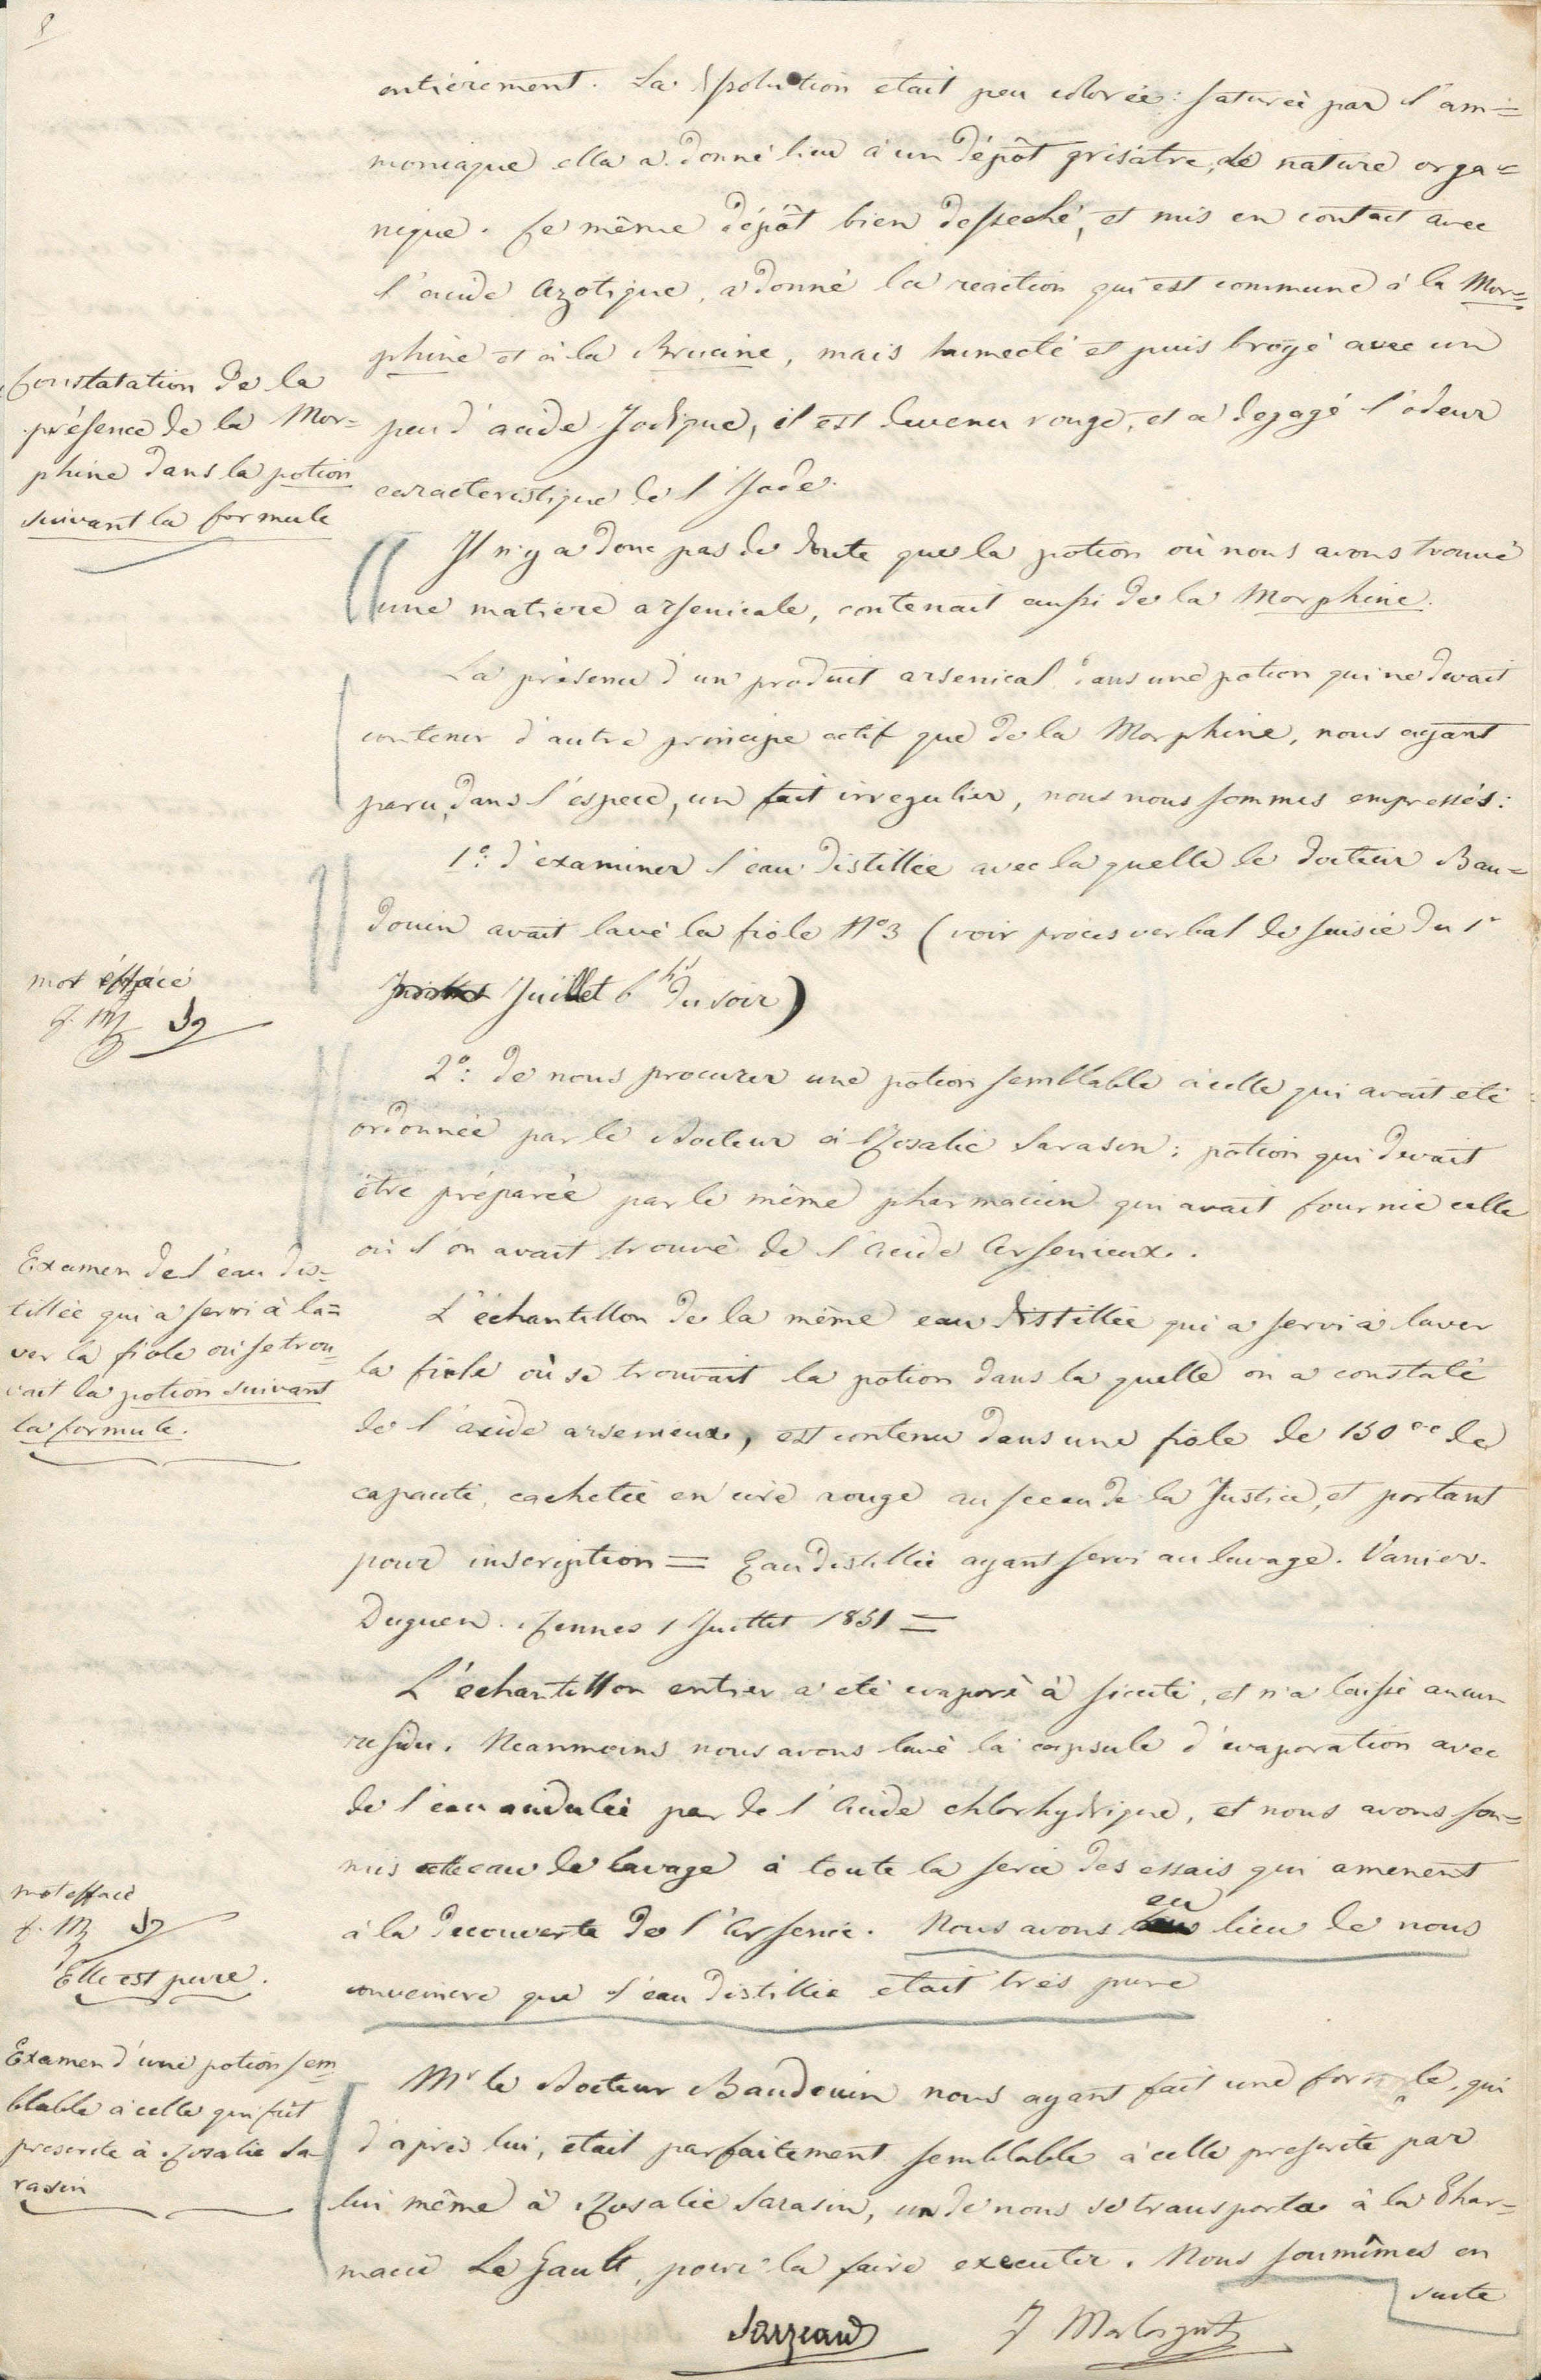 8
entièrement. La solution etait peu colorée: saturée par l'am=
moniaque elle a donné lieu à un dépôt grisâtre, de nature orga=
nique. Ce même dépôt bien desseché, et mis en contact avec
l'acide Azotique, a donné la reaction qui est commune à la Mor=
phine et à la Brucine, mais humecté et puis broyé avec un
peu d'acide Jodique, il est devenu rouge, et a degagé l'odeur
caracteristique de l'Jode.
Constatation de la
présence de la Mor=
phine dans la potion
suivant la formule
Il n'y a donc pas de doute que la potion où nous avons trouvé
une matiere arsenicale, contenait aussi de la Morphine.
La présence d'un produit arsenical dans une potion qui ne devait
contenir d'autre principe actif que de la Morphine, nous ayant
paru, dans l'espece, un fait irregulier, nous nous sommes empressés:
1°: d'examiner l'eau distillée avec la quelle le docteur Bau=
douin avait lavé la fiole N°3 (voir procès verbal de saisie du 1r
Juillet 6 hs du soir)
mot éffacé
f. M
2°: de nous procurer une potion semblable à celle qui avait eté
ordonnée par le Docteur à Rosalie Sarasin; potion qui devait
être préparée par le même pharmacien qui avait fournie celle
où l'on avait trouvé de l'Acide Arsenieux.
Examen de l'eau dis=
tillée qui a servi à la=
ver la fiole où se trou=
vait la potion suivant
la formule.
L'échantillon de la même eau distillée qui a servi à laver
la fiole où se trouvait la potion dans la quelle on a constaté
de l'acide arsenieux, est contenu dans une fiole de 150 cc de
capacité, cachetée en cire rouge au sceau de la Justice, et portant
pour inscription = Eau distillée ayant servi au lavage. Vanier.
Duguen. Rennes 1 Juillet 1851 =
L'échantillon entier a eté evaporé à siccité, et n'a laissé aucun
residu. Neanmoins nous avons lavé la capsule d'evaporation avec
de l'eau acidulée par de l'Acide chlorhydrique, et nous avons sou=
mis cette eau de lavage à toute la serie des essais qui amenent
à la decouverte de l'Arsenic. Nous avons eu lieu de nous
convaincre que l'eau distillée etait très pure
mot effacé
f. M
Elle est pure.
Examen d'une potion sem
blable à celle qui fut
prescrite à Rosalie Sa-
rasin
Mr le Docteur Baudouin nous ayant fait une formule, qui
d'après lui, était parfaitement semblable à celle prescrite par
lui même à Rosalie Sarasin, un de nous se transporta à la Phar=
macie Le Gault, pour la faire executer. Nous soumîmes en
suite
Sarzeau
F Malaguti